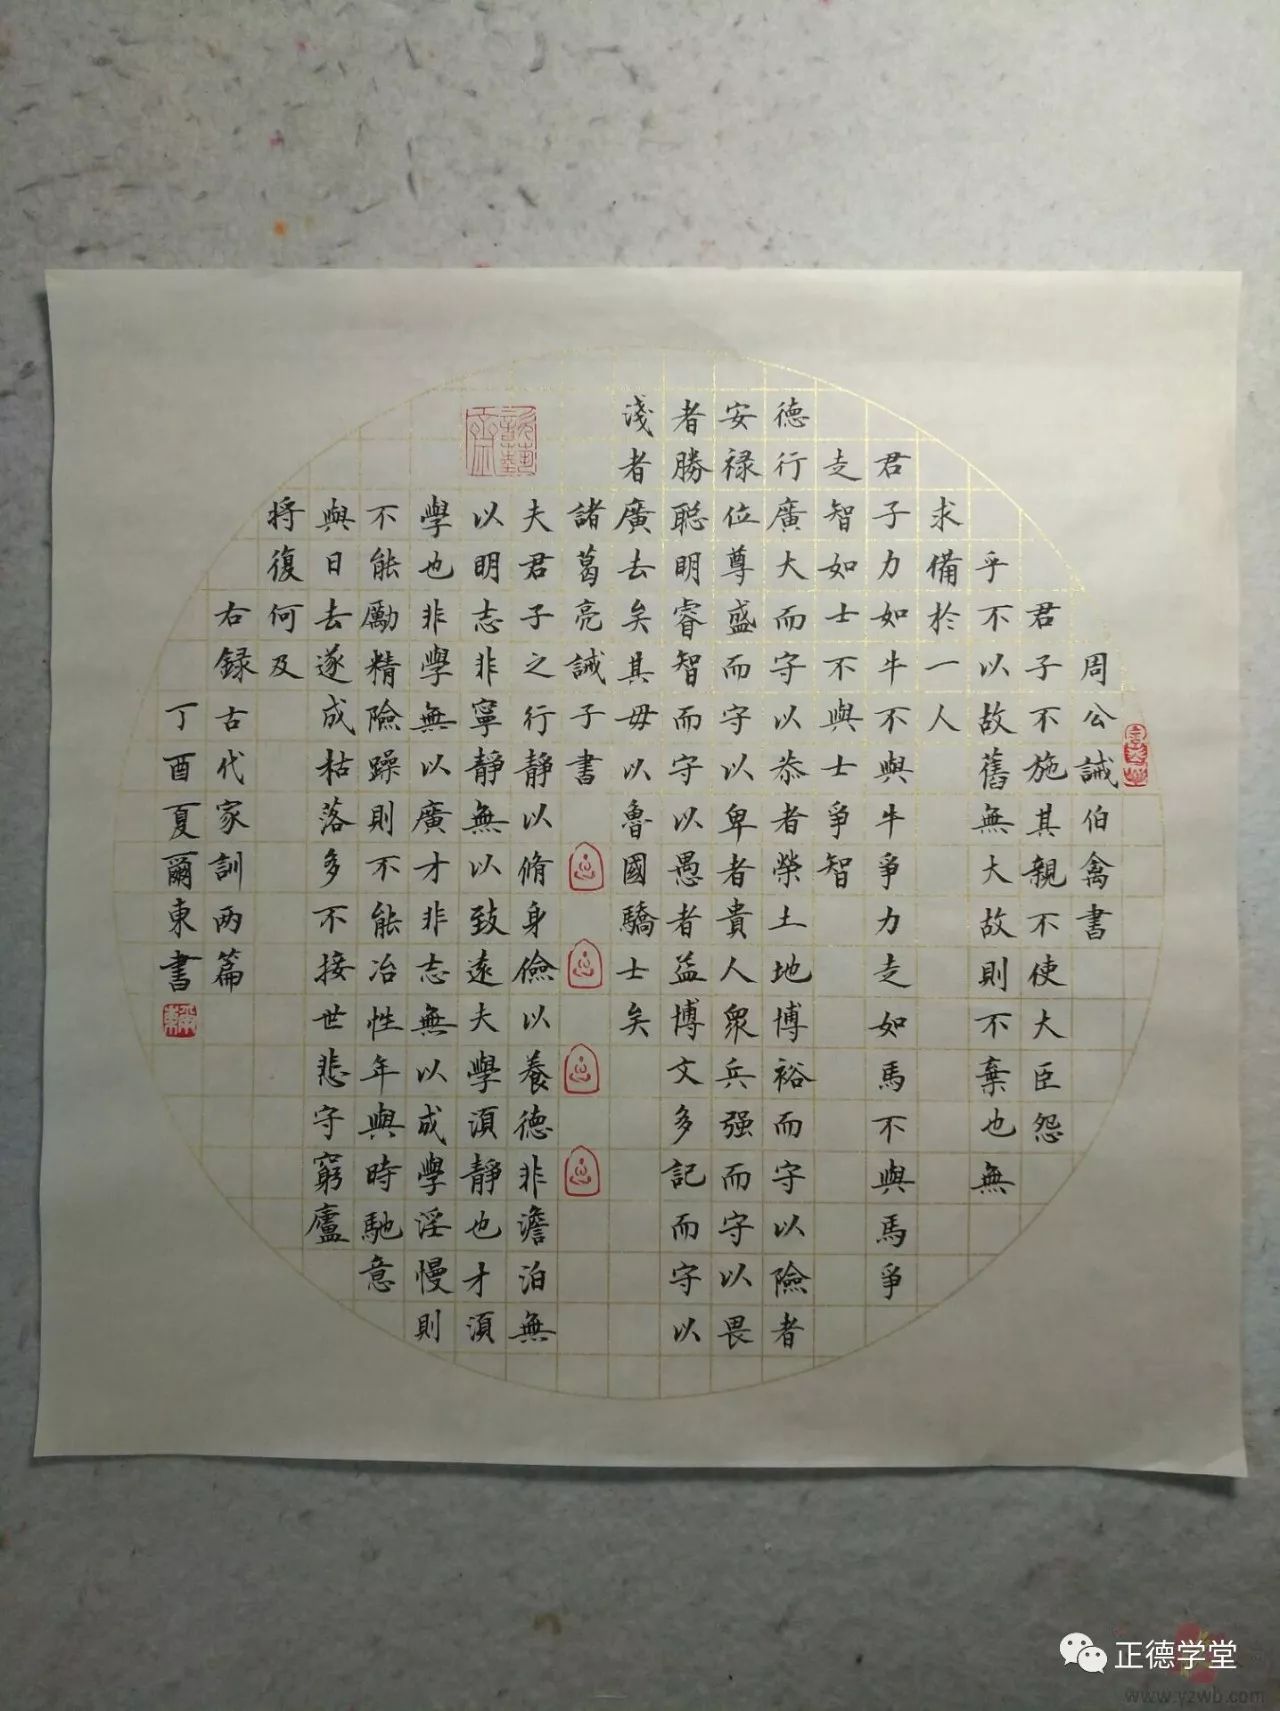 周公誡伯禽書
君子不施其親不使大臣怨
乎不以故舊無大故則不棄也無
求備於一人
君子力如牛不與牛爭力走如馬不與馬爭
走智如士不與士爭智
德行廣大而守以恭者榮土地博裕而守以險者
安禄位尊盛而守以卑者貴人衆兵强而守以畏
者勝聡明睿智而守以愚者益博文多記而守以
淺者廣去矣其毋以魯國驕士矣
諸葛亮誡子書
夫君子之行静以脩身儉以養德非澹泊無
以明志非寧静無以致遠夫學湏静也才湏
學也非學無以廣才非志無以成學淫慢則
不能勵精險躁則不能冶性年與時馳意
與日去遂成枯落多不接世悲守窮廬
将復何及
右録古代家訓两篇
丁酉夏爾東書
正德学堂
www.yzwb.com